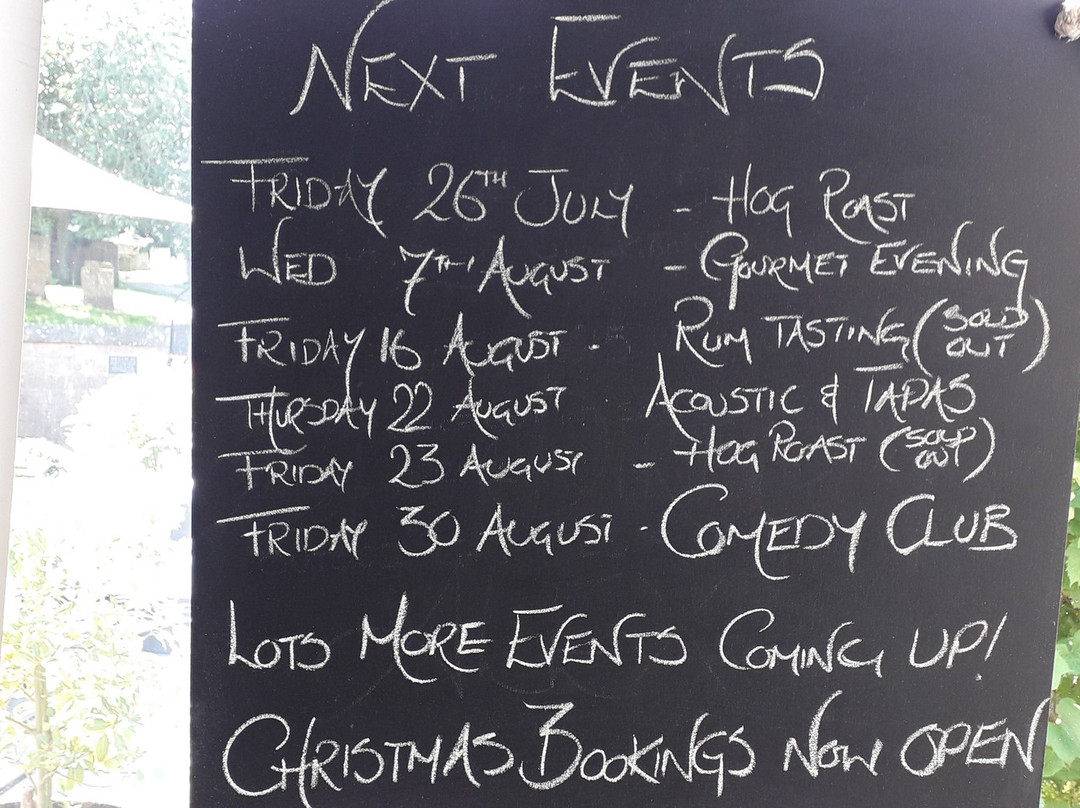 NEXT EVENTS
FRIDAY 26TH JULY - HOG ROAST
WED 7TH AUGUST - GOURMET EVENING
FRIDAY 16 AUGUST - RUM TASTING (SOLD OUT)
THURSDAY 22 AUGUST ACOUSTIC & TAPAS
FRIDAY 23 AUGUST - HOG ROAST (SOLD OUT)
FRIDAY 30 AUGUST - COMEDY CLUB
LOTS MORE EVENTS COMING UP!
CHRISTMAS BOOKINGS NOW OPEN